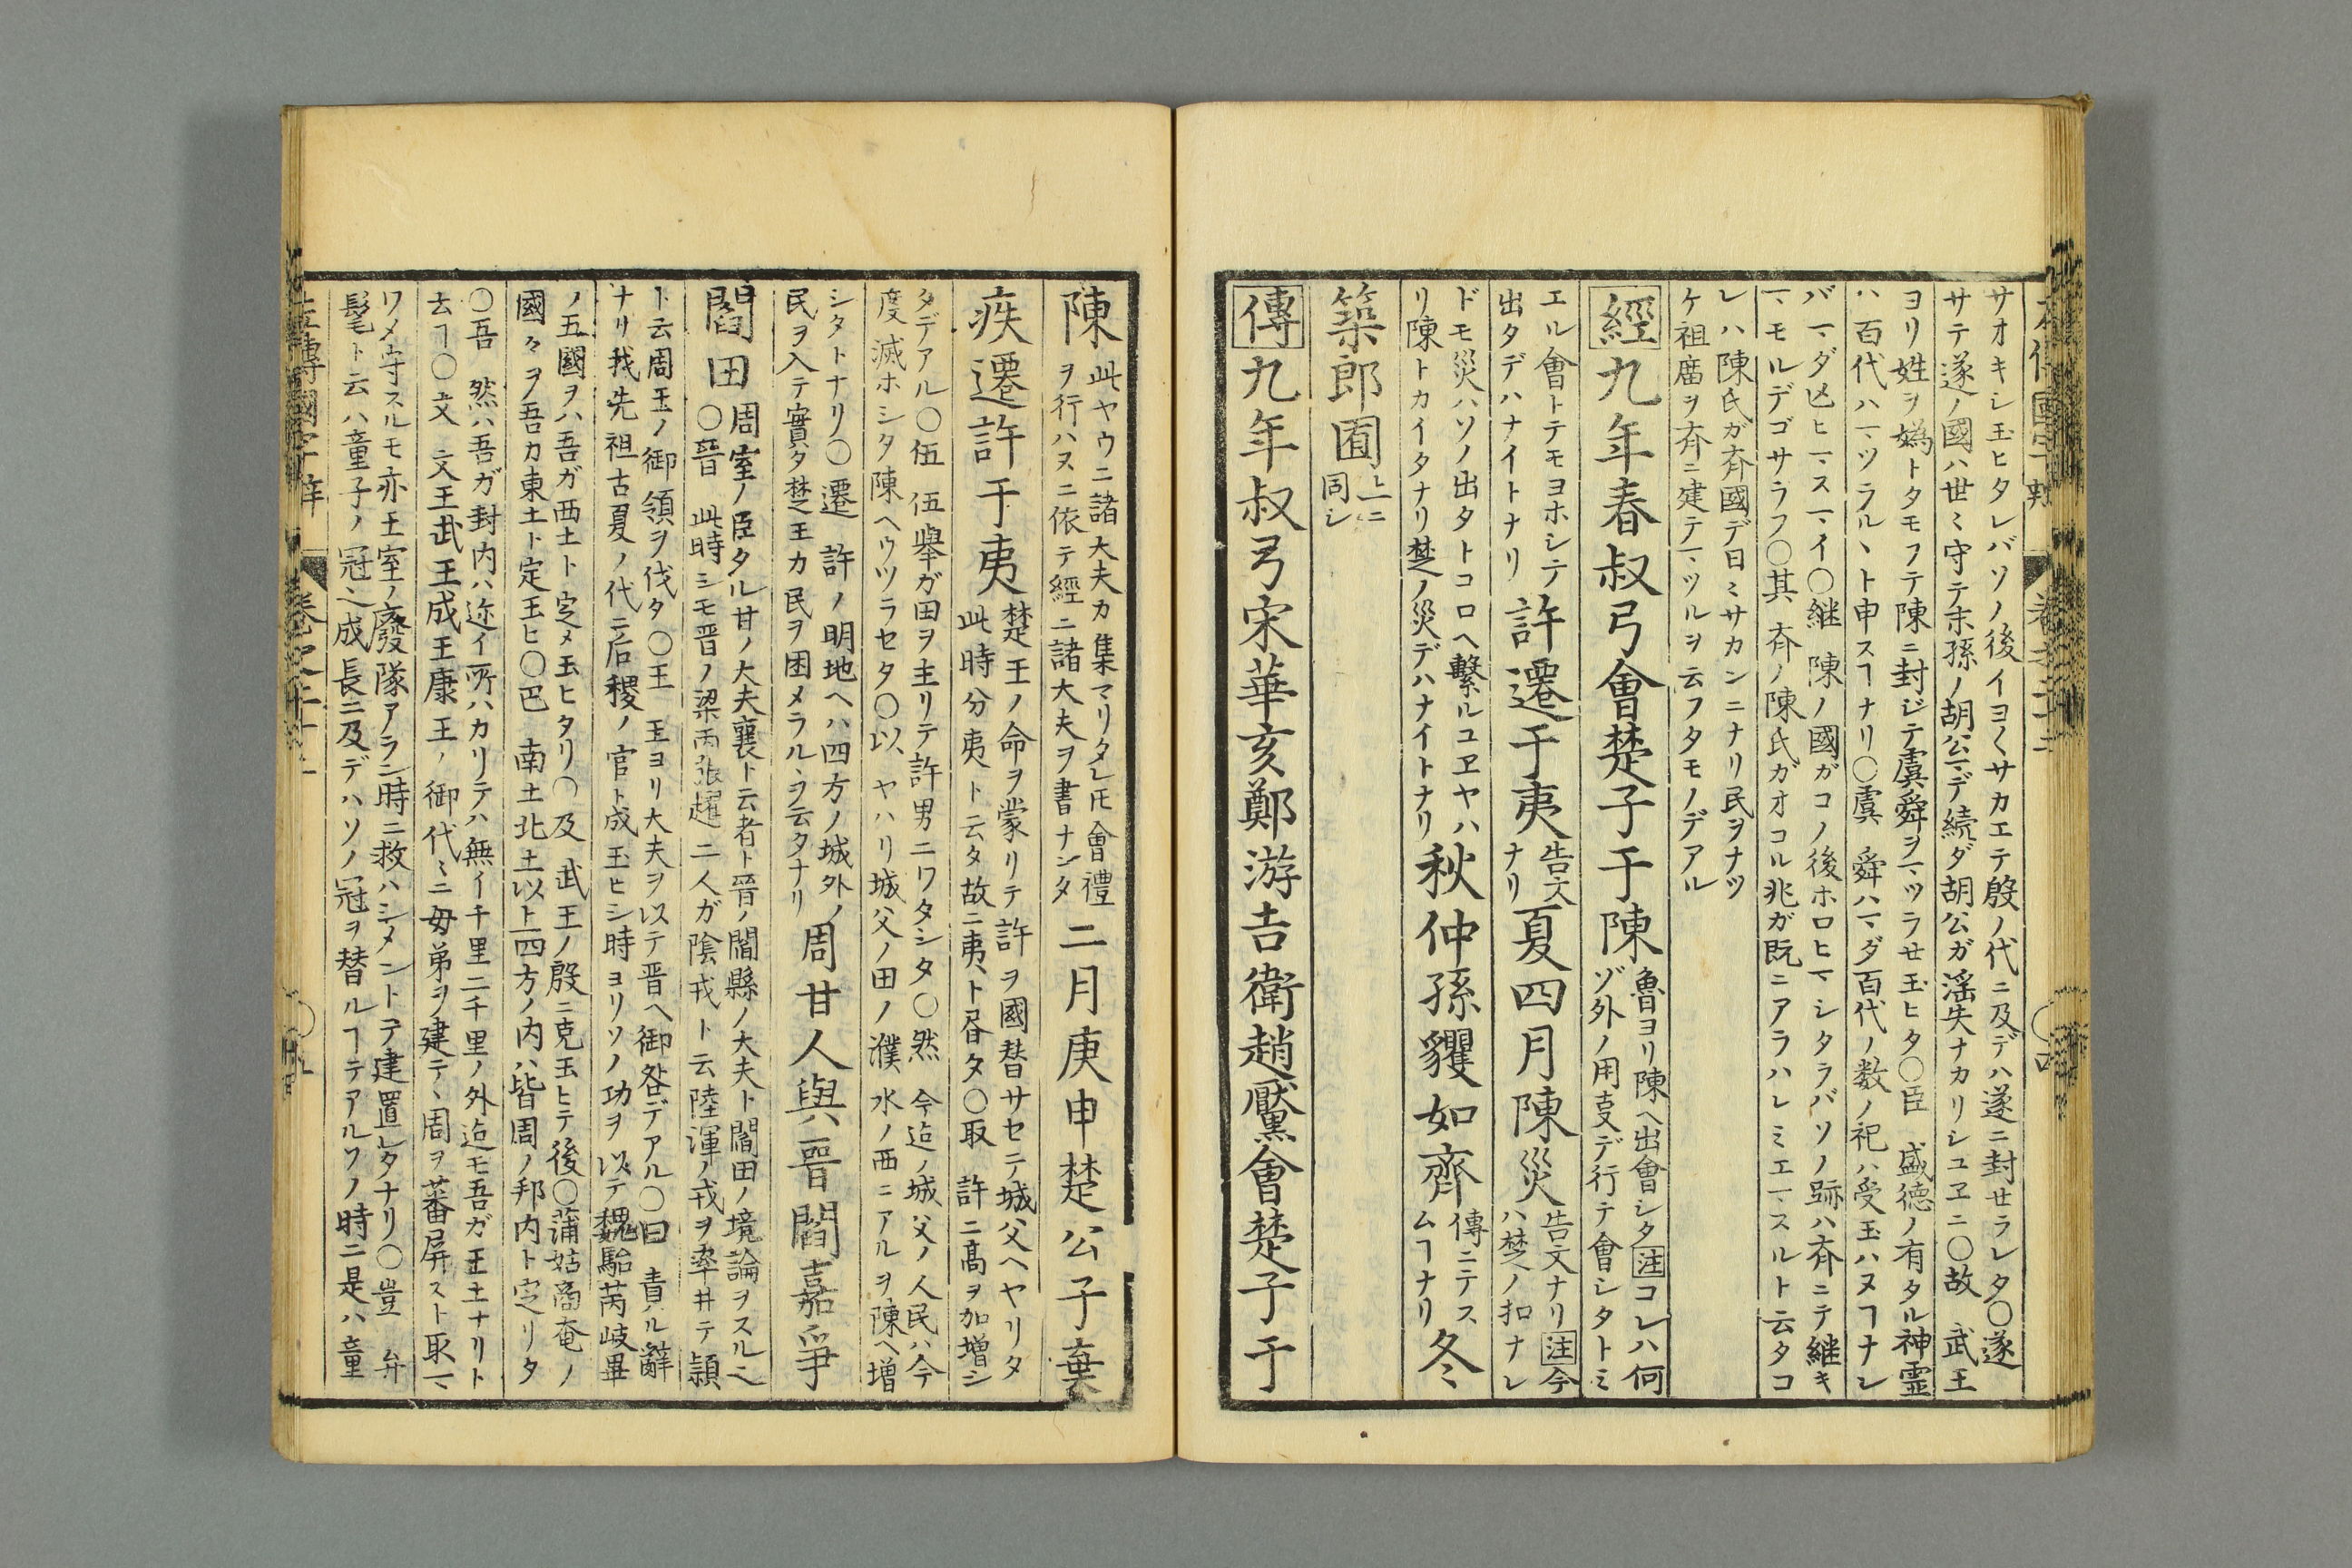 サオキシ玉ヒタレバソノ後イヨ〱サカエテ殷ノ代ニ及デハ遂ニ封セラレタ〇遂
サテ遂ノ國ハ世〻守テ末孫ノ胡公マデ続ダ胡公ガ滛失ナカリシユヱニ〇故 武王
ヨリ姓ヲ嬀トタモフテ陳ニ封ジテ虞舜ヲマツラセ玉ヒタ〇臣 盛德ノ有タル神霊
ハ百代ハマツラルヽト申スヿナリ〇虞 舜ハマダ百代ノ数ノ祀ハ受玉ハヌヿナレ
バマダ凶ヒマスマイ〇継 陳ノ國ガコノ後ホロヒマシタラバソノ跡ハ斉ニテ継キ
マモルデゴサラフ〇其 斉ノ陳氏ガオコル兆ガ既ニアラハレミエマスルト云タコ
レハ陳氏ガ斉國デ日〻サカンニナリ民ヲナツ
ケ祖庿ヲ斉ニ建テマツルヲ云フタモノデアル
經九年春叔弓會楚子于陳
魯ヨリ陳ヘ出會シタ注コレハ何
ゾ外ノ用㕝デ行テ會シタトミ
エル會トテモヨホシテ
出タデハナイトナリ
許遷于夷
告文
ナリ
夏四月陳災
告文ナリ注今
ハ楚ノ扣ナレ
ドモ災ハソノ出タトコロヘ繫ルユヱヤハ
リ陳トカイタナリ楚ノ災デハナイトナリ
秋仲孫貜如齊
傳ニテス
ムヿナリ
冬
築郎囿
上ニ
同シ
傳九年叔弓宋華亥鄭游吉衛趙黶會楚子于
陳
此ヤウニ諸大夫カ集マリタレ𪜈會禮
ヲ行ハヌニ依テ經ニ諸大夫ヲ書ナンタ
二月庚申楚公子棄
疾遷許于夷
楚王ノ命ヲ蒙リテ許ヲ國替サセテ城父ヘヤリタ
此時分夷ト云タ故ニ夷ト昏タ〇取 許ニ髙ヲ加増シ
タデアル〇伍 伍舉ガ田ヲ主リテ許男ニワタシタ〇然 今迠ノ城父ノ人民ハ今
度滅ホシタ陳ヘウツラセタ〇以 ヤハリ城父ノ田ノ濮水ノ西ニアルヲ陳ヘ増
シタトナリ〇遷 許ノ明地ヘハ四方ノ城外ノ
民ヲ入テ實タ楚王カ民ヲ困メラルヽヲ云タナリ
周甘人與晋閻嘉爭
閻田
周室ノ臣タル甘ノ大夫襄ト云者ト晋ノ閻縣ノ大夫ト閻田ノ境論ヲスル也
〇晉 此時シモ晋ノ梁丙張趯二人ガ陰戎ト云陸渾ノ戎ヲ率井テ頴
ト云周王ノ御領ヲ伐タ〇王 王ヨリ大夫ヲ以テ晋ヘ御咎デアル〇曰 責ル辭
ナリ我先祖古夏ノ代ニ后稷ノ官ト成玉ヒシ時ヨリソノ功ヲ以テ魏駘芮岐畢
ノ五國ヲハ吾ガ西土ト定メ玉ヒタリ〇及 武王ノ殷ニ克玉ヒテ後〇蒲姑商奄ノ
國々ヲ吾カ東土ト定玉ヒ〇巴 南土北土以上四方ノ内ハ皆周ノ邦内ト定リタ
〇吾 然ハ吾ガ封内ハ迩イ所ハカリテハ無イ千里二千里ノ外迠モ吾ガ王土ナリト
云ヿ〇文 文王武王成王康王ノ御代〻ニ母弟ヲ建テヽ周ヲ蕃屏スト取マ
ワメ守スルモ亦王室ノ廢隊アラン時ニ救ハシメントテ建置レタナリ〇豈 弁
髦ト云ハ童子ノ冠也成長ニ及デハソノ冠ヲ替ルヿテアルソノ時ニ是ハ童